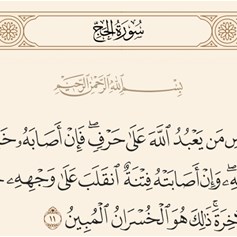 سُورَةُ الحَجِّ
بِسْمِ اللَّهِ الرَّحْمَٰنِ الرَّحِيمِ
مَن يَعْبُدُ ٱللَّهَ عَلَىٰ حَرْفٍۖ فَإِنْ أَصَابَهُۥ
وَإِنْ أَصَابَتْهُ فِتْنَةٌ ٱنقَلَبَ عَلَىٰ وَجْهِهِۦ
ذَٰلِكَ هُوَ ٱلْخُسْرَانُ ٱلْمُبِينُ ١١